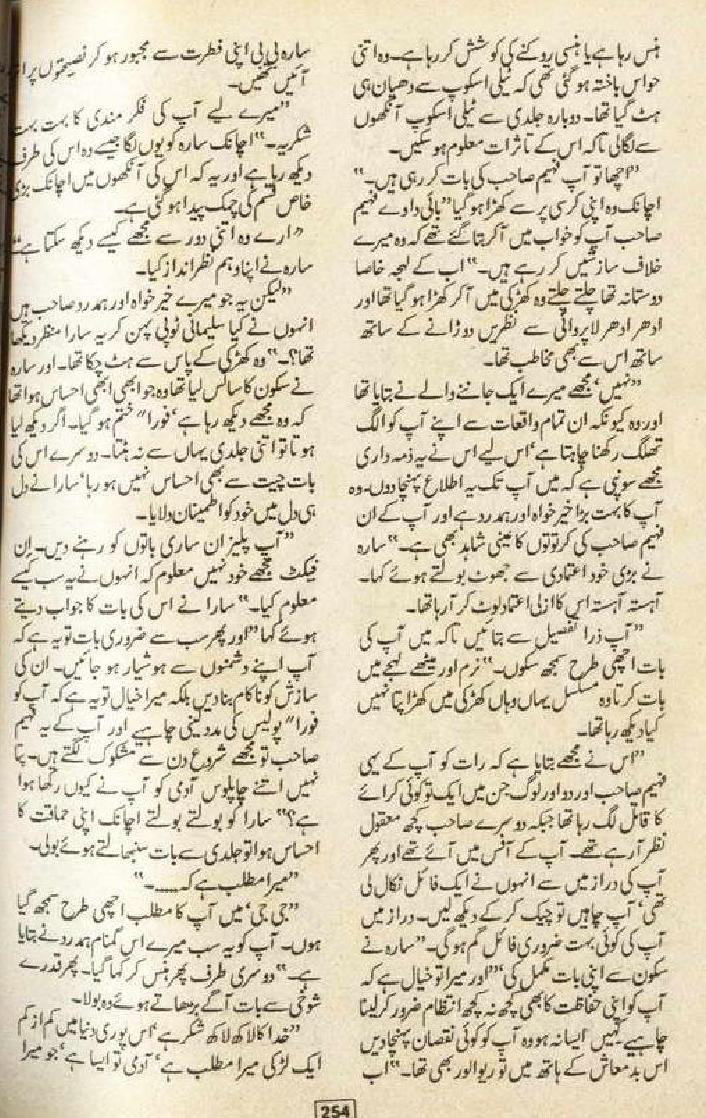 ہنس رہا ہے یا ہنسی روکنے کی کوشش کر رہا ہے۔ وہ اتنی
حواس باختہ ہو گئی تھی کہ ٹیلی اسکوپ سے دھیان ہی
ہٹ گیا تھا۔ دوبارہ جلدی سے ٹیلی اسکوپ آنکھوں
سے لگالی تاکہ اس کے تاثرات معلوم ہو سکیں۔
”اچھا تو آپ فہیم صاحب کی بات کر رہی ہیں۔“
اچانک وہ اپنی کرسی پر سے کھڑا ہو گیا ”بائی داوے فہیم
صاحب آپ کو خواب میں آکر بتا گئے تھے کہ وہ میرے
خلاف سازشیں کر رہے ہیں۔“ اب کے لہجہ خاصا
دوستانہ تھا چلتے چلتے وہ کھڑکی میں آکر کھڑا ہو گیا تھا اور
ادھر ادھر لاپروائی سے نظریں دوڑانے کے ساتھ
ساتھ اس سے بھی مخاطب تھا۔
”نہیں‘ مجھے میرے ایک جاننے والے نے بتایا تھا
اور وہ کیونکہ ان تمام واقعات سے اپنے آپ کو الگ
تھلگ رکھنا چاہتا ہے‘ اس لیے اس نے یہ ذمہ داری
مجھے سونپی ہے کہ میں آپ تک یہ اطلاع پہنچا دوں۔ وہ
آپ کا بہت بڑا خیر خواہ اور ہمدرد ہے اور آپ کے ان
فہیم صاحب کی کرتوتوں کا عینی شاہد بھی ہے۔“ سارہ
نے بڑی خود اعتمادی سے جھوٹ بولتے ہوئے کہا۔
آہستہ آہستہ اس کا ازلی اعتماد لوٹ کر آ رہا تھا۔
”آپ ذرا تفصیل سے بتائیں تاکہ میں آپ کی
بات اچھی طرح سمجھ سکوں۔“ نرم اور میٹھے لہجے میں
بات کرتا وہ مسلسل یہاں وہاں کھڑکی میں کھڑا پتا نہیں
کیا دیکھ رہا تھا۔
”اس نے مجھے بتایا ہے کہ رات کو آپ کے یہی
فہیم صاحب اور دو اور لوگ جن میں ایک تو کوئی کرائے
کا قاتل لگ رہا تھا جبکہ دوسرے صاحب کچھ معقول
نظر آ رہے تھے۔ آپ کے آفس میں آئے تھے اور پھر
آپ کی دراز میں سے انہوں نے ایک فائل نکال لی
تھی‘ آپ چاہیں تو چیک کر کے دیکھ لیں۔ دراز میں
آپ کی کوئی بہت ضروری فائل گم ہوگی۔“ سارہ نے
سکون سے اپنی بات مکمل کی ”اور میرا تو خیال ہے کہ
آپ کو اپنی حفاظت کا بھی کچھ نہ کچھ انتظام ضرور کر لینا
چاہیے کہیں ایسا نہ ہو وہ آپ کو کوئی نقصان پہنچا دیں
اس بدمعاش کے ہاتھ میں تو ریوالور بھی تھا۔“ اب
سارہ بی بی اپنی فطرت سے مجبور ہو کر نصیحتوں پر اتر
آئیں تھیں۔
”میرے لیے آپ کی فکر مندی کا بہت بہت
شکریہ۔“ اچانک سارہ کو یوں لگا جیسے وہ اس کی طرف
دیکھ رہا ہے اور یہ کہ اس کی آنکھوں میں اچانک بڑی
خاص قسم کی چمک پیدا ہو گئی ہے۔
”ارے وہ اتنی دور سے مجھے کیسے دیکھ سکتا ہے“
سارہ نے اپنا وہم نظر انداز کیا۔
”لیکن یہ جو میرے خیر خواہ اور ہمدرد صاحب ہیں
انہوں نے کیا سلیمانی ٹوپی پہن کر یہ سارا منظر دیکھا
تھا؟۔“ وہ کھڑکی کے پاس سے ہٹ چکا تھا۔ اور سارہ
نے سکون کا سانس لیا تھا وہ جو ابھی ابھی احساس ہوا تھا
کہ وہ مجھے دیکھ رہا ہے‘ فورا“ ختم ہو گیا۔ اگر دیکھ لیا
ہوتا تو اتنی جلدی یہاں سے نہ ہٹتا۔ دوسرے اس کی
بات چیت سے بھی احساس نہیں ہو رہا‘ سارا نے دل
ہی دل میں خود کو اطمینان دلایا۔
”آپ پلیز ان ساری باتوں کو رہنے دیں۔ ان
فیکٹ مجھے خود نہیں معلوم کہ انہوں نے یہ سب کیسے
معلوم کیا۔“ سارا نے اس کی بات کا جواب دیتے
ہوئے کہا ”اور پھر سب سے ضروری بات تو یہ ہے کہ
آپ اپنے دشمنوں سے ہوشیار ہو جائیں۔ ان کی
سازش کو ناکام بنا دیں بلکہ میرا خیال تو یہ ہے کہ آپ کو
فورا“ پولیس کی مدد لینی چاہیے اور آپ کے یہ فہیم
صاحب تو مجھے شروع دن سے مشکوک لگتے ہیں۔ پتا
نہیں اتنے چاپلوس آدمی کو آپ نے کیوں رکھا ہوا
ہے؟“ سارا کو بولتے بولتے اچانک اپنی حماقت کا
احساس ہوا تو جلدی سے بات سنبھالتے ہوئے بولی۔
”میرا مطلب ہے کہ.......۔“
”جی جی‘ میں آپ کا مطلب اچھی طرح سمجھ گیا
ہوں۔ آپ کو یہ سب میرے اس گمنام ہمدرد نے بتایا
ہے۔“ دوسری طرف پھر ہنس کر کہا گیا۔ پھر قدرے
شوخی سے بات آگے بڑھاتے ہوئے وہ بولا۔
”خدا کا لاکھ لاکھ شکر ہے‘ اس پوری دنیا میں کم از کم
ایک لڑکی میرا مطلب ہے‘ آدمی تو ایسا ہے‘ جو میرا
254